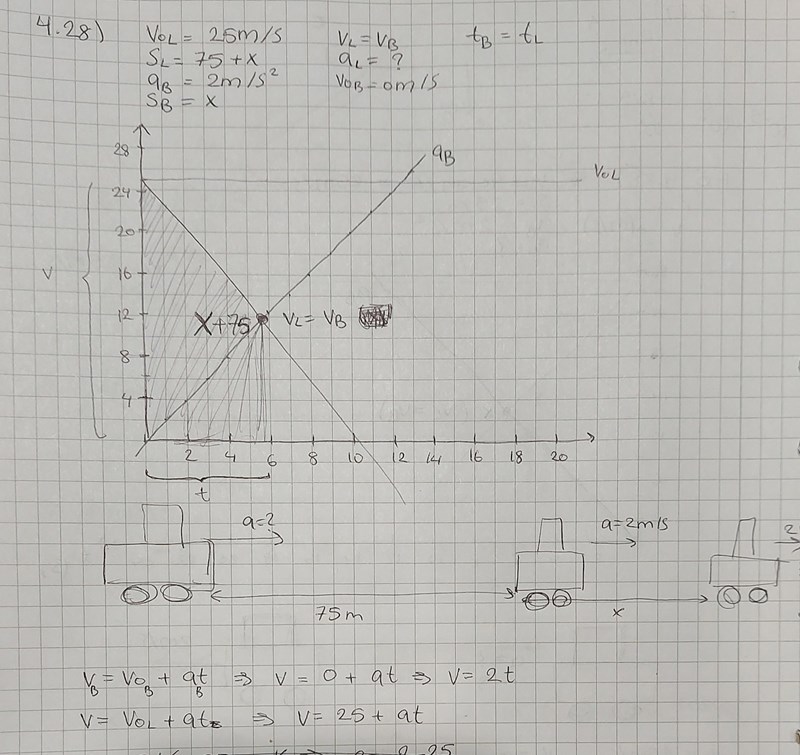 4.28) VOL = 25m/s VL = VB tB = tL
SL = 75 + x aL = ?
aB = 2m/s² VOB = 0m/s
SB = x
28
aB
VOL
24
20
V
16
12
X+75 VL = VB
8
4
2 4 6 8 10 12 14 16 18 20
t
a=?
a=2m/s
2
75m
x
VB = VOB + atB ⇒ V = 0 + at ⇒ V = 2t
V = VOL + at ⇒ V = 25 + at